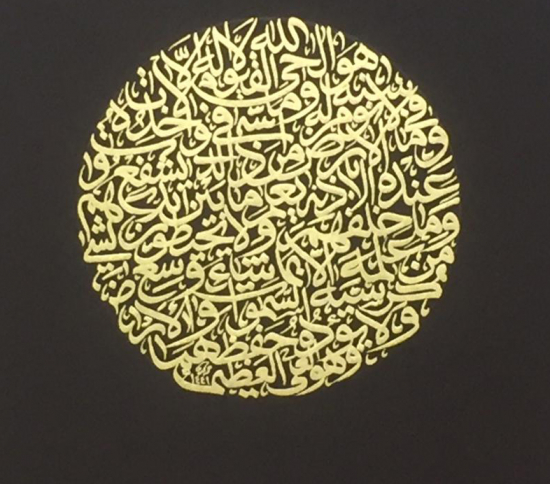 الله لا إله إلا هو الحي القيوم
لا تأخذه سنة ولا نوم له ما في السموات
وما في الأرض من ذا الذي يشفع
عنده إلا بإذنه يعلم ما بين أيديهم
وما خلفهم ولا يحيطون بشيء
من علمه إلا بما شاء وسع
كرسيه السموات والأرض
ولا يؤده حفظهما
وهو العلي العظيم